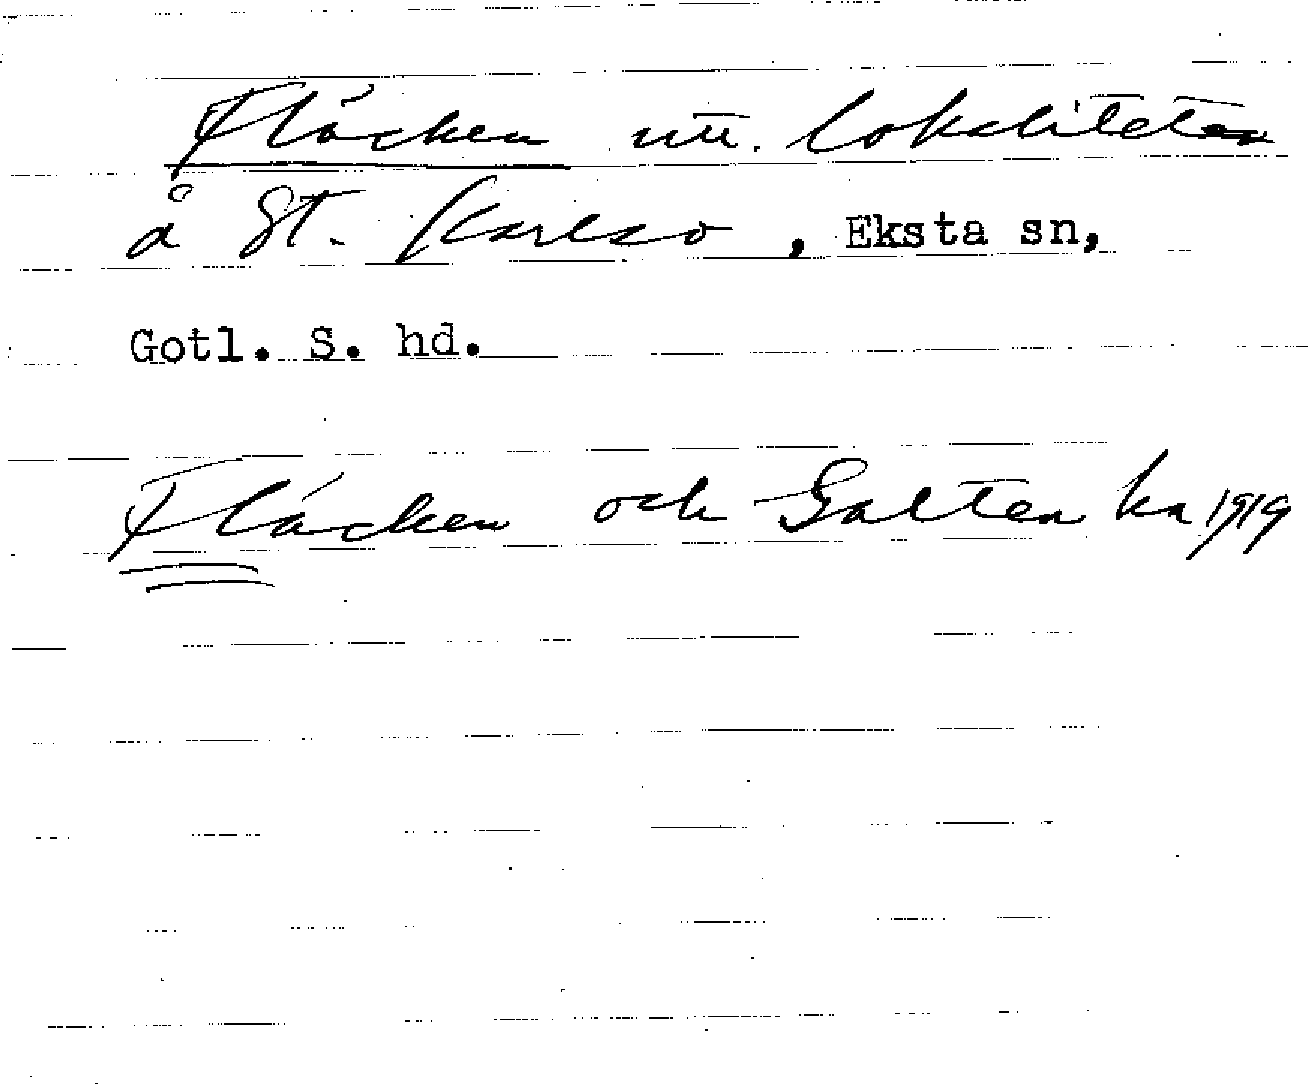 Fläcken utt. lokaliteten
å St. Karlsö, Eksta sn,
Gotl. S. hd.
Fläcken och Galten ka 1919